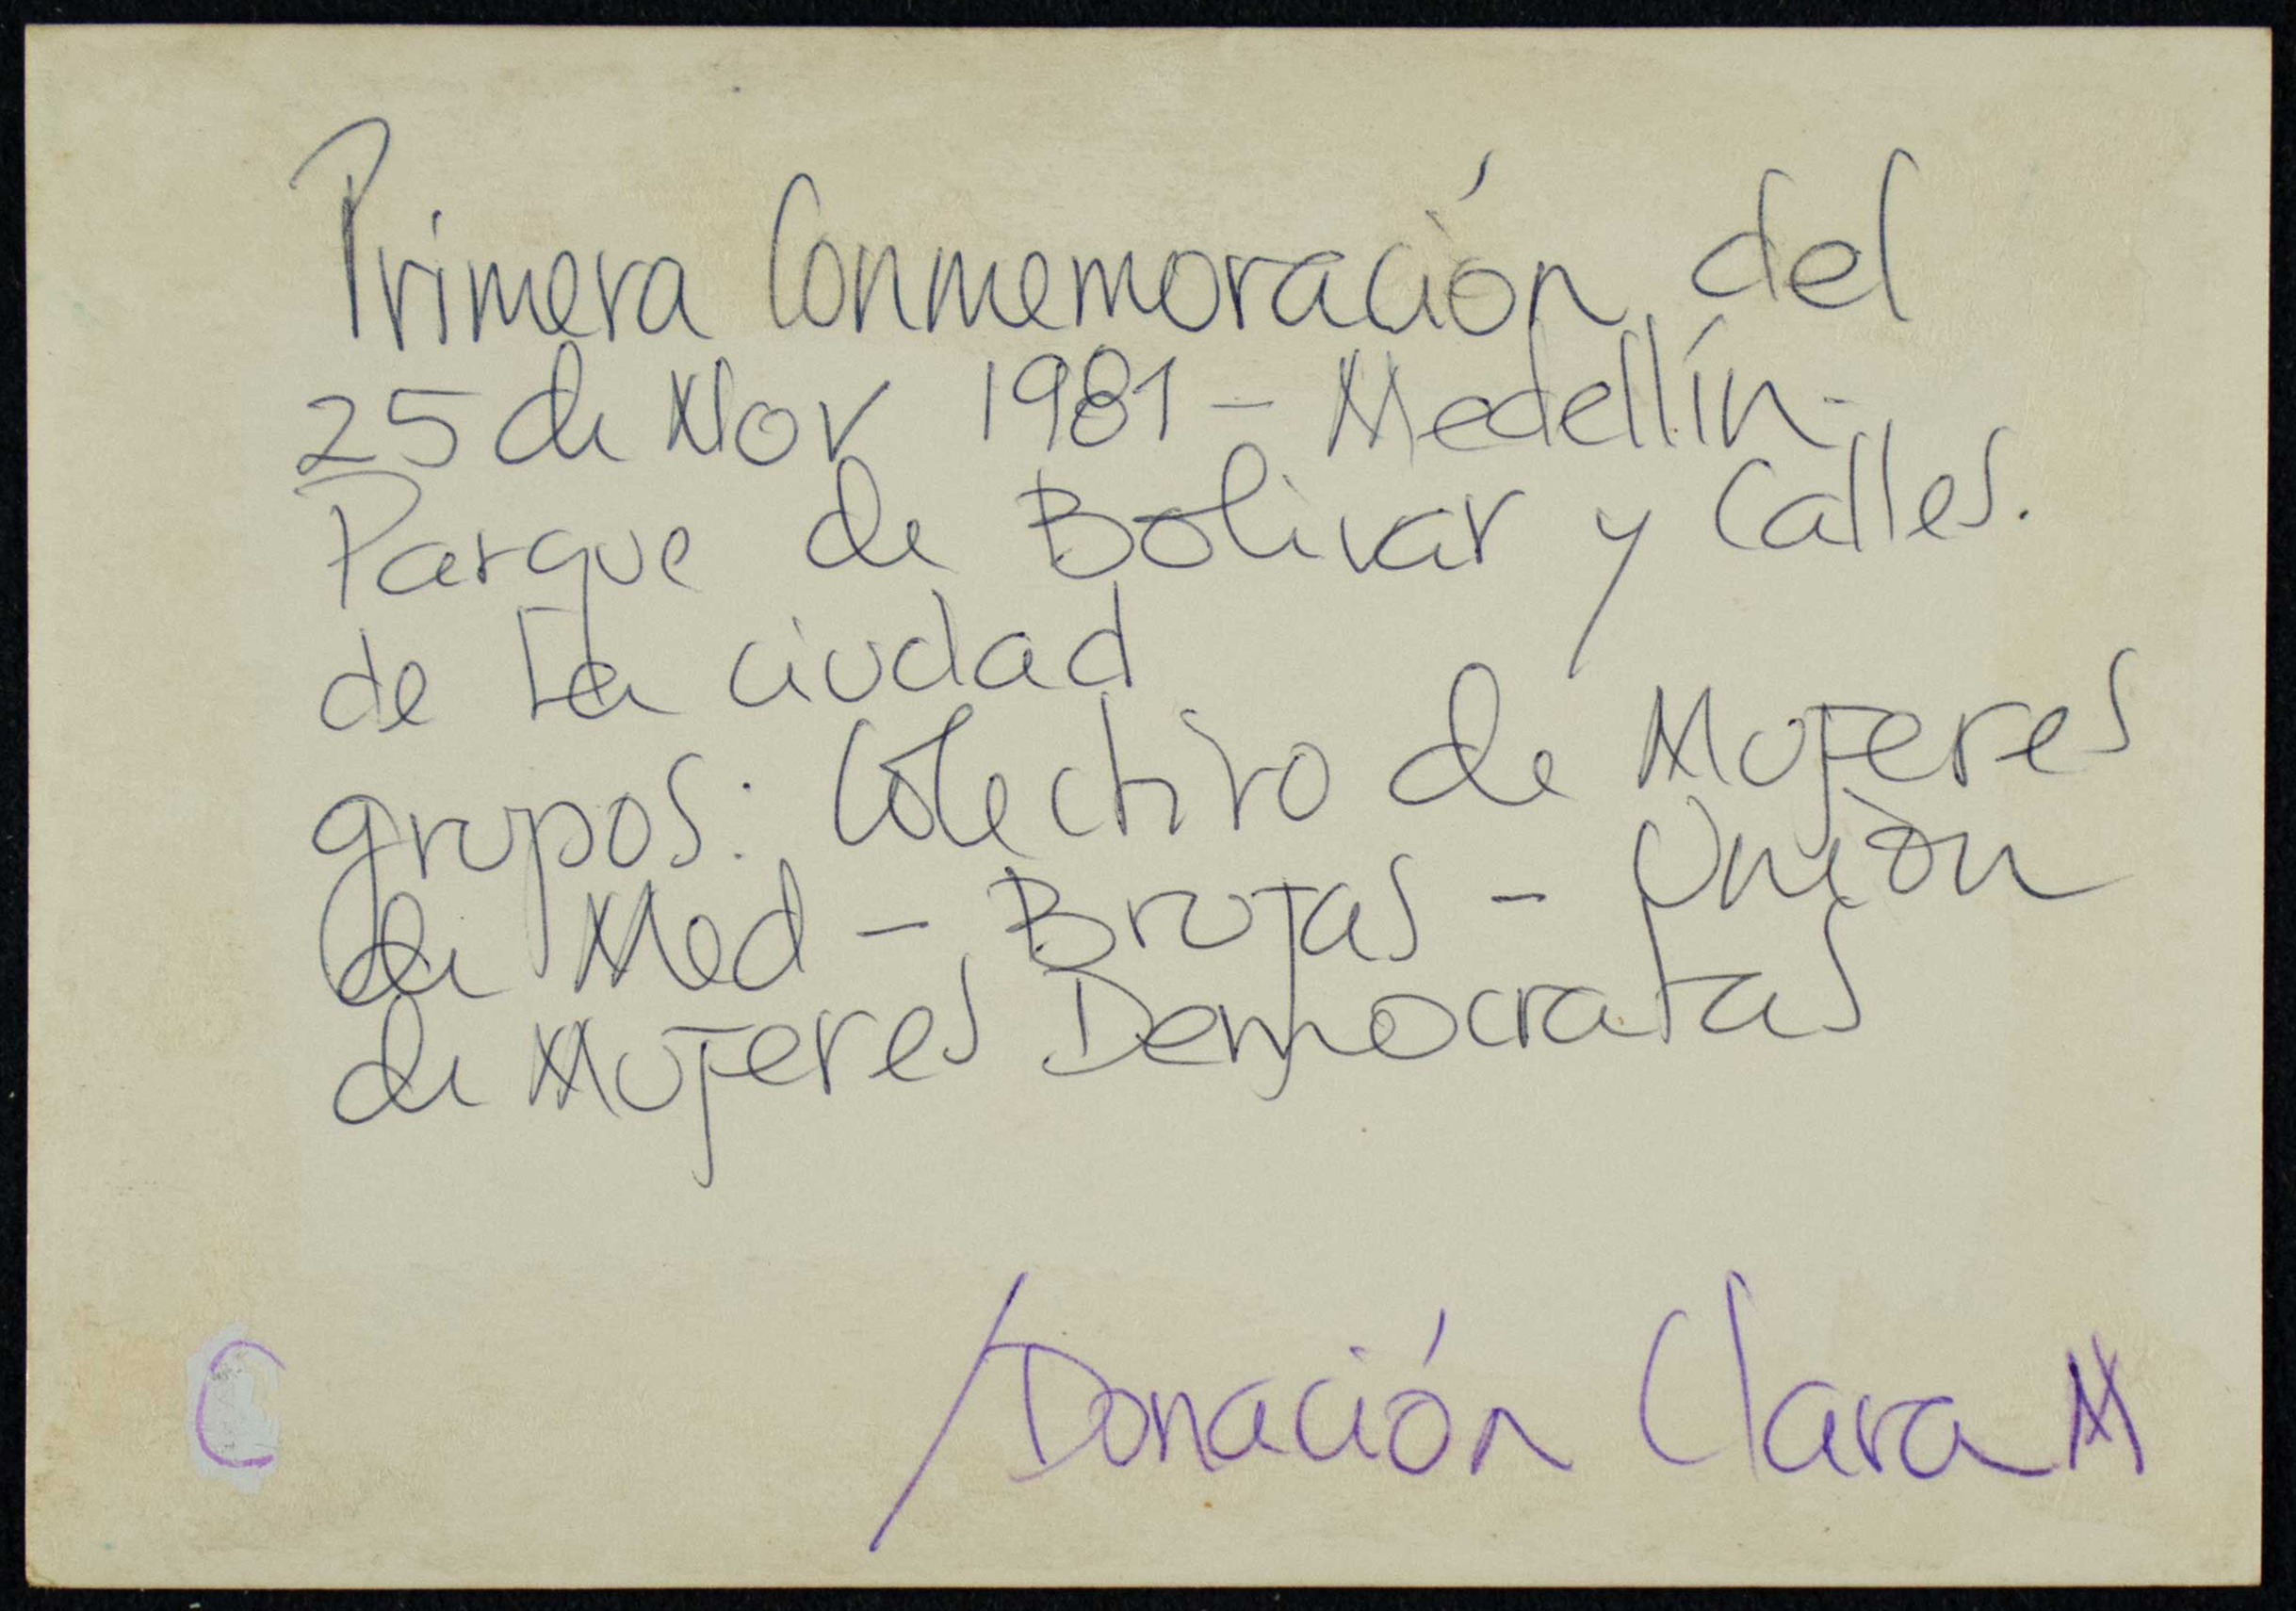 Primera Conmemoración del
25 de Nov 1981 - Medellín -
Parque de Bolivar y Calles.
de La ciudad
grupos: Colectivo de Mujeres
de Med - Brujas - Unión
de Mujeres Democratas
C
/Donación Clara M